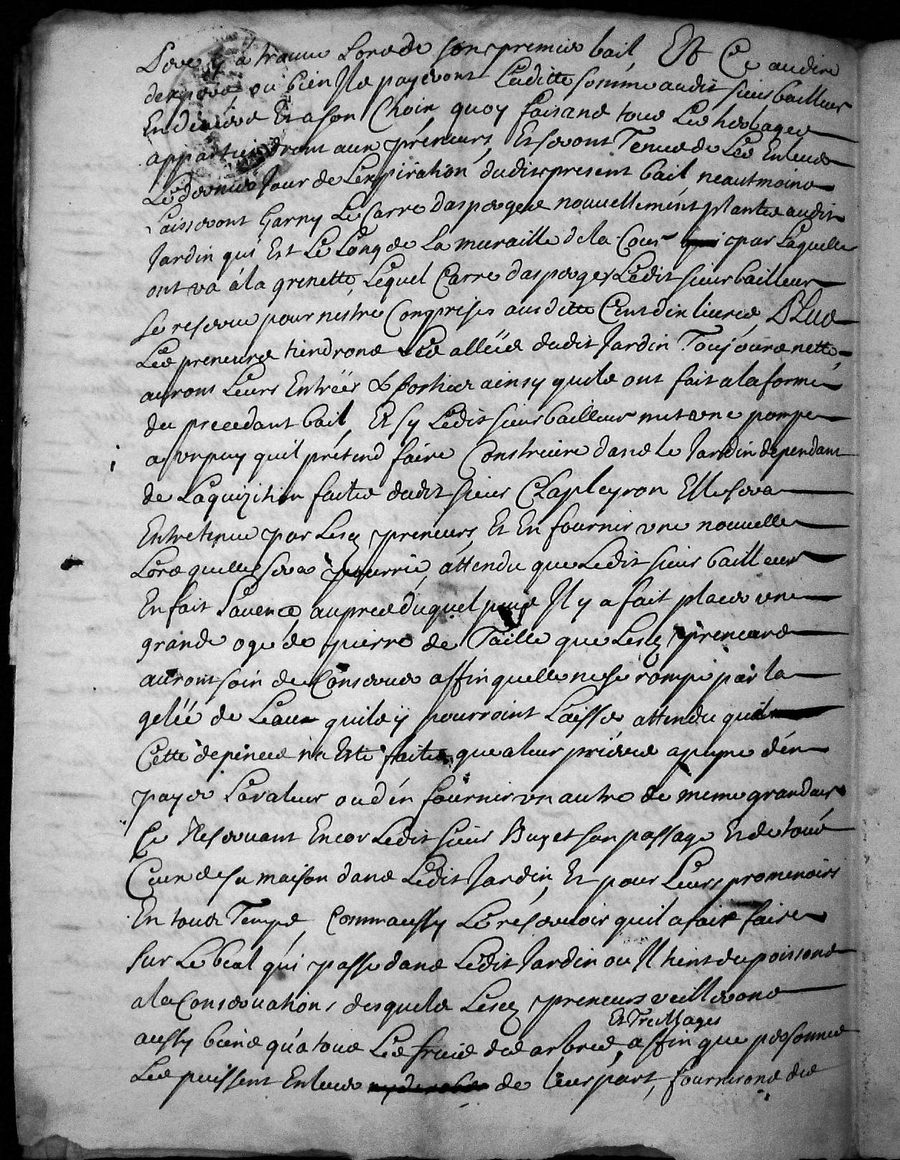 a trouvé Lors de son premier bail Et Ce au dire
dexpers ou bien Ils payeront Laditte somme audit sieur bailleur
En deniers Et a son Choix quoy faisant tous Les herbages
appartiendront aux preneurs, Et seront Tenus de Les Enlever
Le dernier Jour de Lexpiration dudit present bail neautmoins
Laisseront Garny Le Carre dasperges nouvellement plantes audit
Jardin qui Est Le Long de La muraille de la Cour par Laquelle
ont va á la grenette, Lequel Carre dasperges Ledit sieur bailleur
Se reserve pour nestre Comprises ausditte Cent dix livres Plus
Les preneurs tiendront Les allées dudit Jardin Toujours nette,
aurons Leurs Entrées & sorties ainsy quils ont fait a la forme
du precedant bail, Et sy Ledit sieur bailleur met une pompe
a Un puy quil prétend faire Construire dans le Jardin dependant
de Laquizition faitte dudit sieur Clapleyron Elle sera
Entretenue par Lesz preneurs, Et En fournir une nouvelle
Lors quelle sera pourrie, attendu que Ledit sieur bailleur
En fait Lavence, aupres duquel puis Il y a fait placer une
grande oge de pierre de Taille que Lesz preneurs
auront soin de Conserver affin quelle ne se rompe par la
gelée de Leau quils y pourroint Laisser attendu que
Cette depence na Esté faitte que a leur priere a peyne d'en
payer La valeur ou d'en fournir un autre de meme grandeur
Ce Reservant Encor Ledit sieur Buget son passage Et de tous
Ceux de sa maison dans Ledit Jardin, Et pour Leurs promenoirs
En tous Temps, Comm'aussy Le reservoir quil a fait faire
sur Le beal qui passe dans Ledit Jardin ou Il tient du poissons
a la Conservations desquels Lesz preneurs veilleronst
Et Treillages
aussy biens qu'a tous Les fruis des arbres, affin que personnes
Les puissent Enlever de leur part, fournirons des